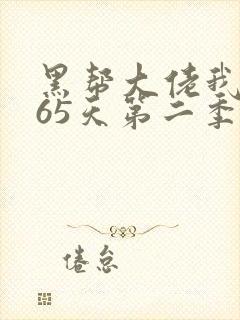 黑帮大佬我
65天第二季
倦怠